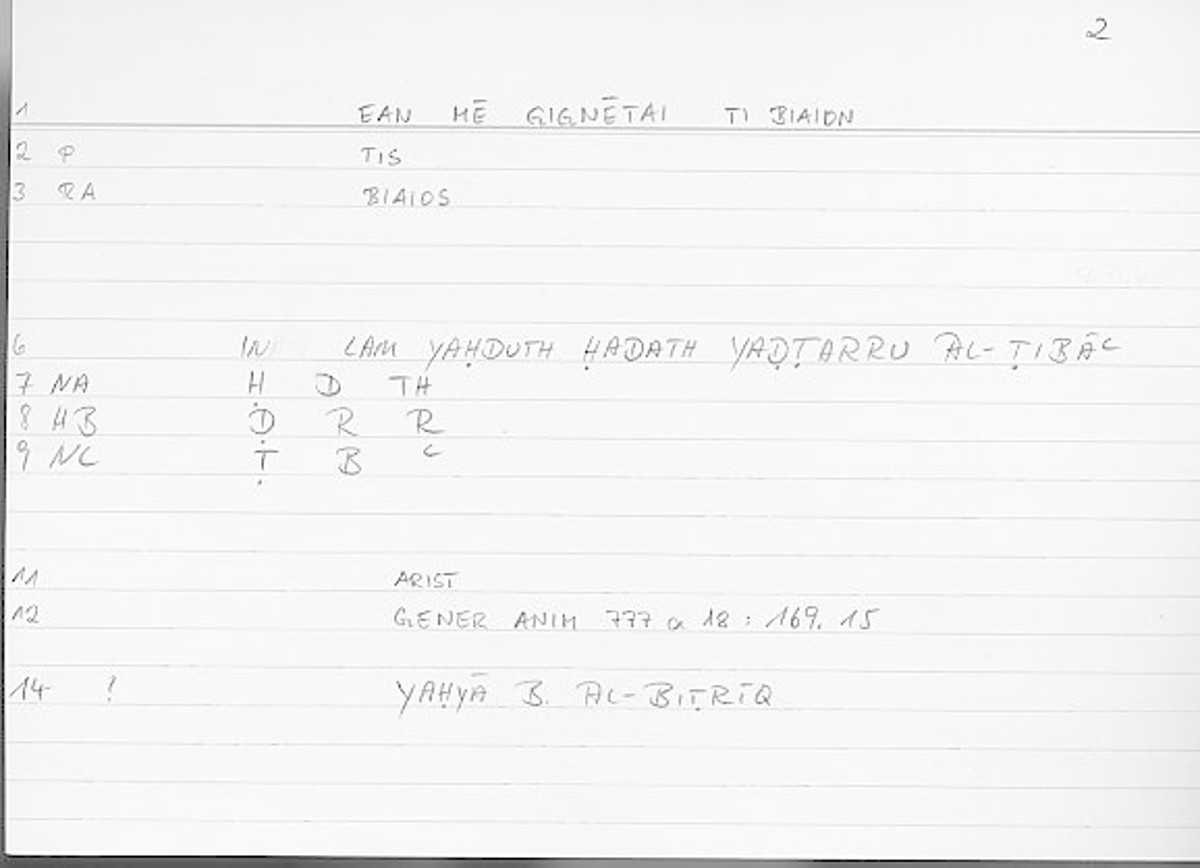 2
1 EAN MĒ GIGNĒTAI TI BIAION
2 P TIS
3 RA BIAIOS
6 IN LAM YAḤDUTH ḤADATH YAḌṬARRU AL-ṬIBĀC
7 NA Ḥ D TH
8 HB Ḍ R R
9 NC Ṭ B C
11 ARIST
12 GENER ANIM 777 a 18 : 169. 15
14 ! YAḤYĀ B. AL-BIṬRĪQ